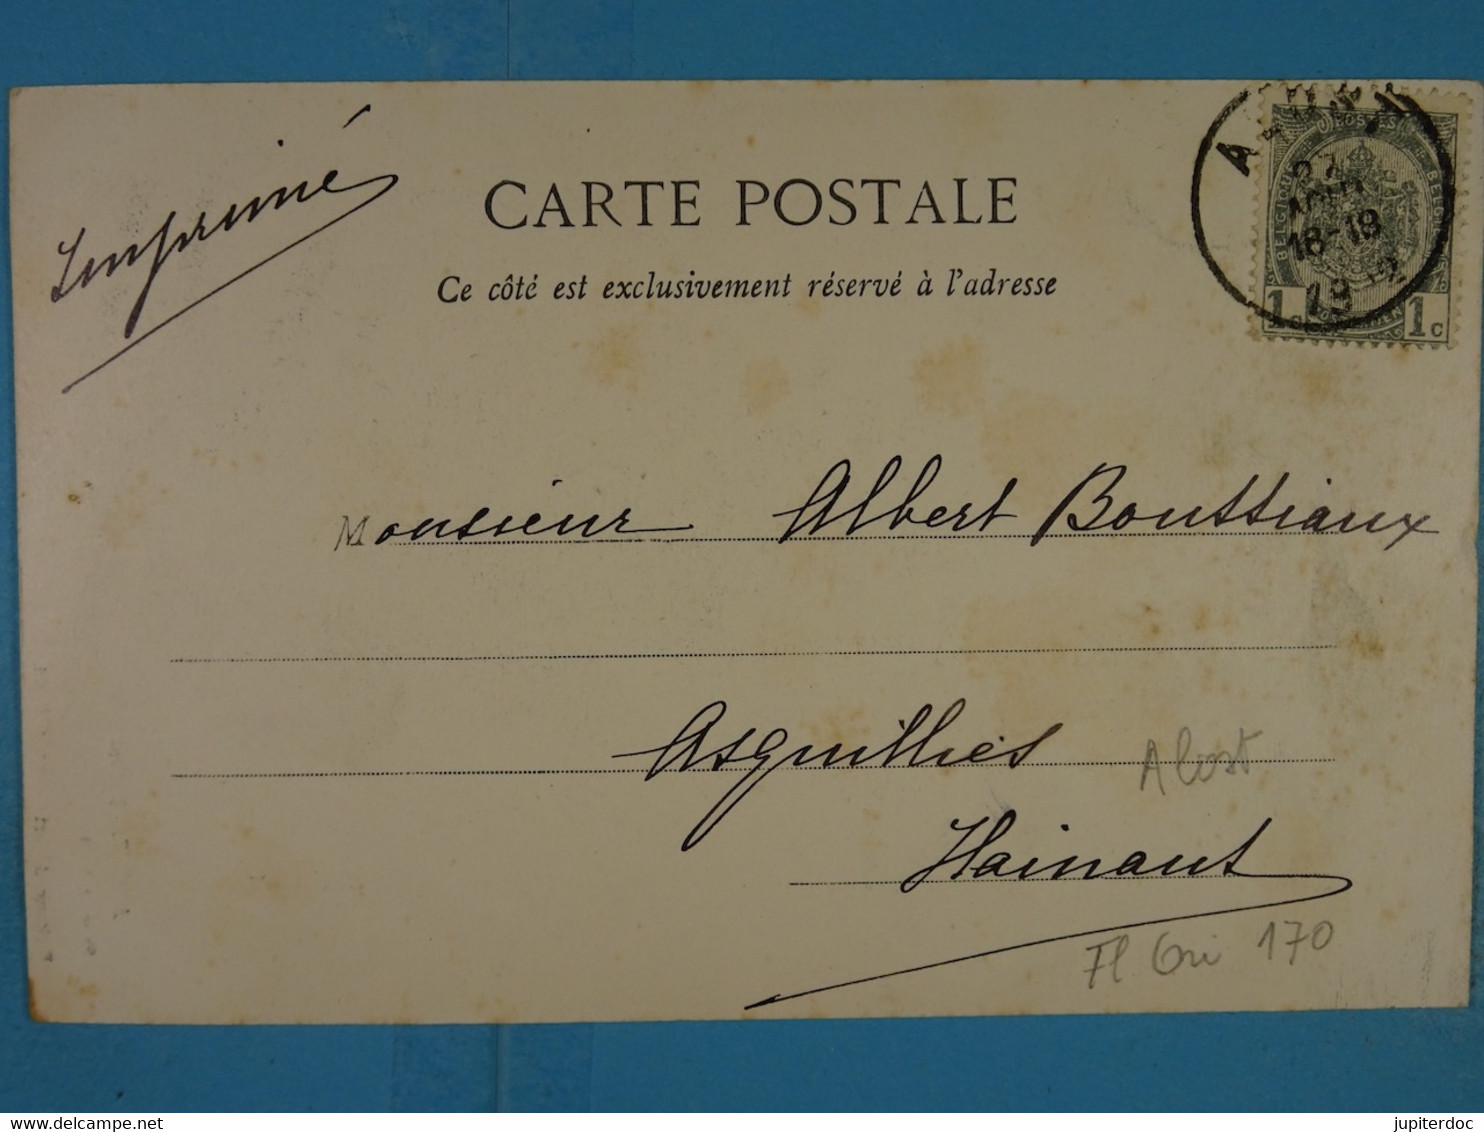 Imprimé
CARTE POSTALE
Ce côté est exclusivement réservé à l'adresse
ALOST
AOUT
18-18
19
BELGIQUE
POSTES
1c 1c
Monsieur Albert Bouttiaux
Asquillies
Alost
Hainaut
Fl Ori 170
www.delcampe.net
jupiterdoc